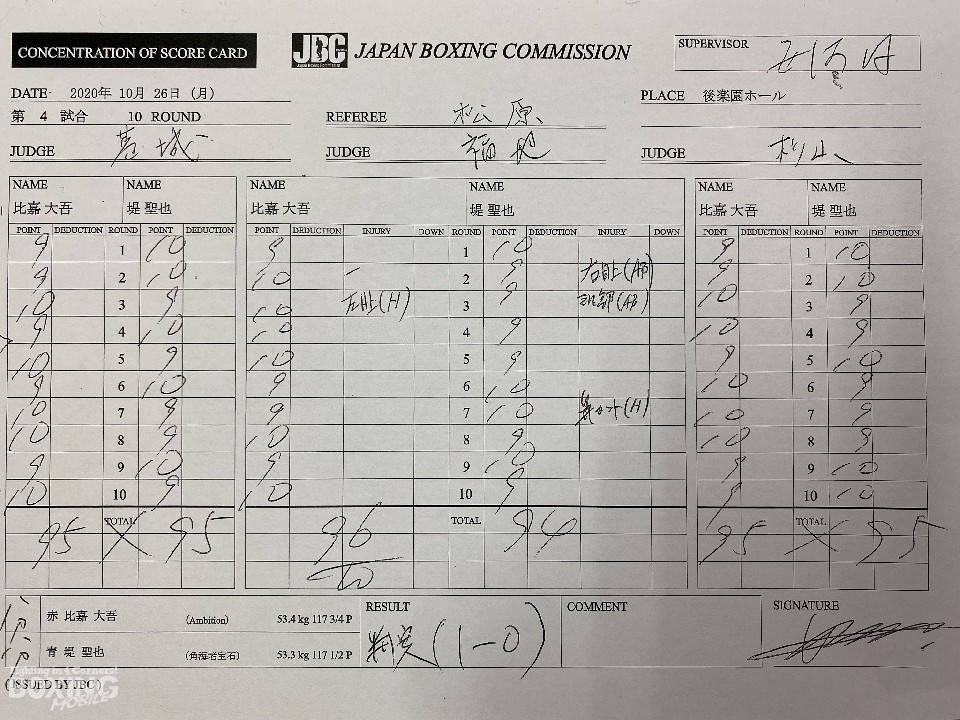 CONCENTRATION OF SCORE CARD
JBC JAPAN BOXING COMMISSION
SUPERVISOR
DATE 2020年 10月 26日 (月)
PLACE 後楽園ホール
第 4 試合 10 ROUND
REFEREE 松原
JUDGE 葛城 JUDGE 福地 JUDGE 杉山
NAME NAME NAME NAME NAME NAME
比嘉 大吾 堤 聖也 比嘉 大吾 堤 聖也 比嘉 大吾 堤 聖也
POINT DEDUCTION ROUND POINT DEDUCTION POINT DEDUCTION INJURY DOWN ROUND POINT DEDUCTION INJURY DOWN POINT DEDUCTION ROUND POINT DEDUCTION
9 1 10 9 1 10 9 1 10
9 2 10 10 2 9 右目上(AB) 9 2 10
10 3 9 10 左目上(H) 3 9 (AB) 10 3 9
9 4 10 10 4 9 10 4 9
10 5 9 10 5 9 9 5 10
9 6 10 9 6 10 10 6 9
10 7 9 9 7 10 鼻カット(H) 10 7 9
10 8 9 10 8 9 10 8 9
9 9 10 9 9 10 9 9 10
10 10 9 10 10 9 9 10 10
95 TOTAL 95 96 TOTAL 94 95 TOTAL 95
赤 比嘉 大吾 (Ambition) 53.4 kg 117 3/4 P
青 堤 聖也 (角海老宝石) 53.3 kg 117 1/2 P
RESULT
(1-0)
COMMENT
SIGNATURE
(ISSUED BY JBC)
Fighting in 4 Corners!
BOXING
MOBILE